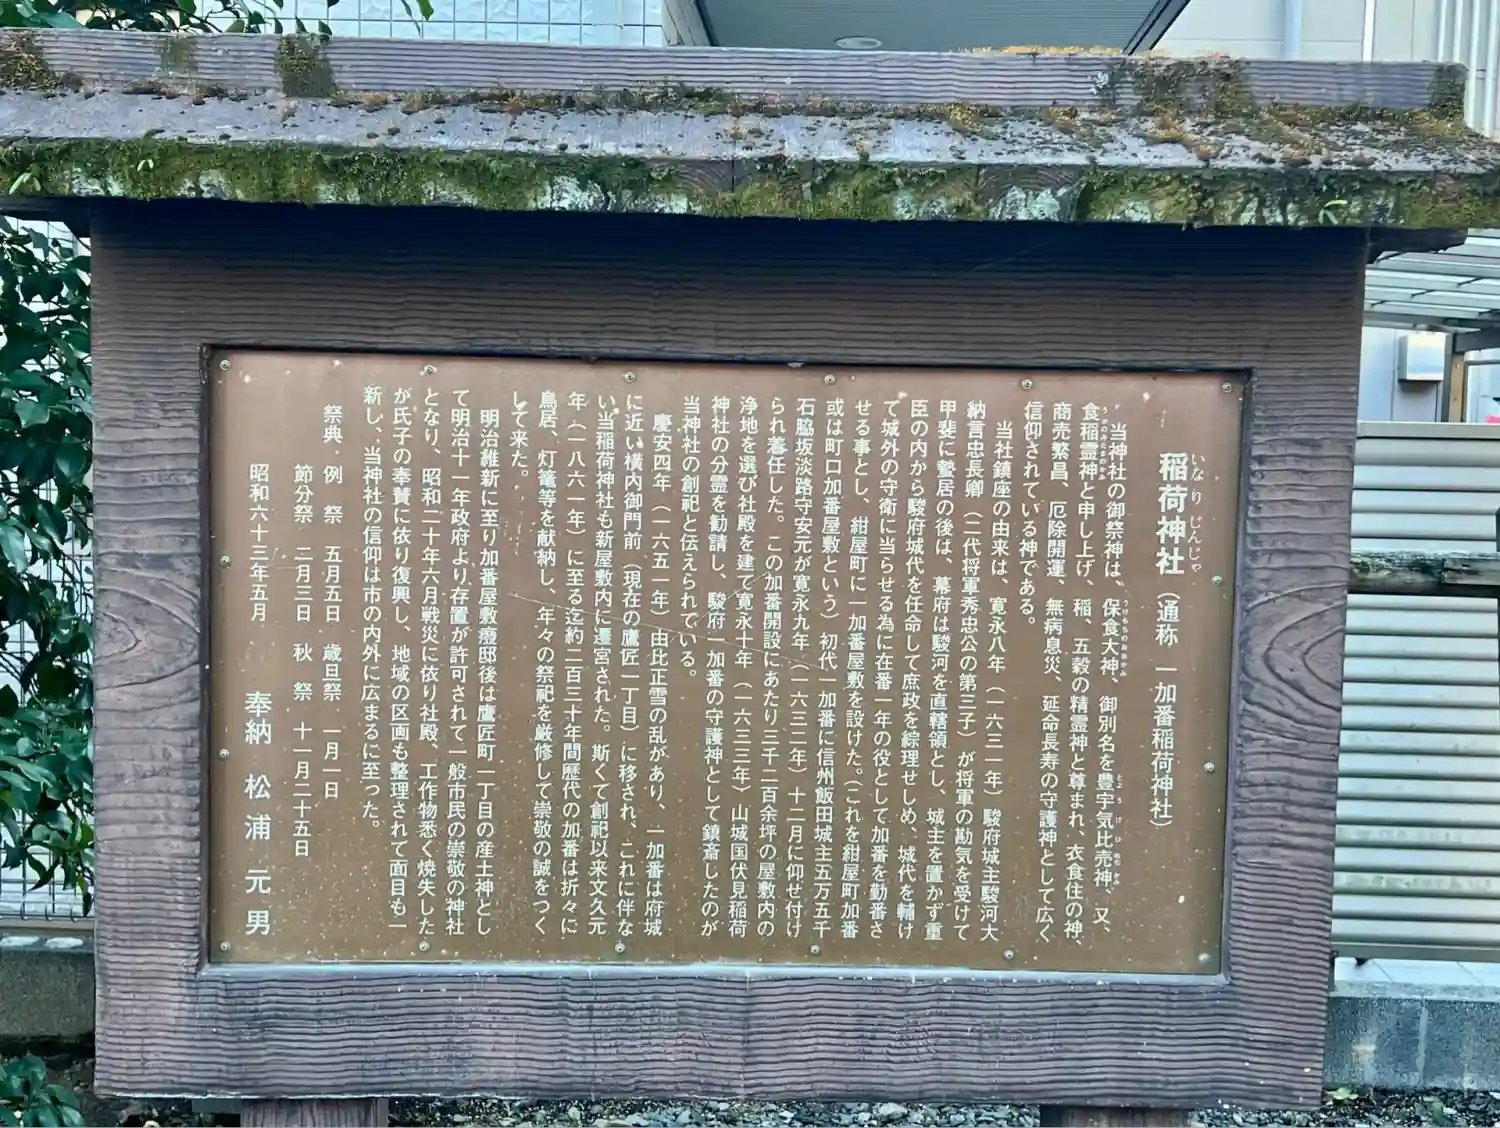 稲荷神社（通称　一加番稲荷神社）
いなりじんじゃ
当神社の御祭神は、保食大神、御別名を豊宇気比売神、又、
うけもちのおおかみ
とようけひめかみ
食稲霊神と申し上げ、稲、五穀の精霊神と尊まれ、衣食住の神、
うかのみたまのかみ
商売繁昌、厄除開運、無病息災、延命長寿の守護神として広く
信仰されている神である。
当社鎮座の由来は、寛永八年（一六三一年）駿府城主駿河大
納言忠長卿（二代将軍秀忠公の第三子）が将軍の勘気を受けて
甲斐に蟄居の後は、幕府は駿河を直轄領とし、城主を置かず重
臣の内から駿府城代を任命して庶政を綜理せしめ、城代を輔け
て城外の守衛に当らせる為に在番一年の役として加番を勤番さ
せる事とし、紺屋町に一加番屋敷を設けた。（これを紺屋町加番
或は町口加番屋敷という）初代一加番に信州飯田城主五万五千
石脇坂淡路守安元が寛永九年（一六三二年）十二月に仰せ付け
られ着任した。この加番開設にあたり三千二百余坪の屋敷内の
浄地を選び社殿を建て寛永十年（一六三三年）山城国伏見稲荷
神社の分霊を勧請し、駿府一加番の守護神として鎮斎したのが
当神社の創祀と伝えられている。
慶安四年（一六五一年）由比正雪の乱があり、一加番は府城
に近い横内御門前（現在の鷹匠一丁目）に移され、これに伴な
い当稲荷神社も新屋敷内に遷宮された。斯くて創祀以来文久元
年（一八六一年）に至る迄約二百三十年間歴代の加番は折々に
鳥居、灯篭等を献納し、年々の祭祀を厳修して崇敬の誠をつく
して来た。
明治維新に至り加番屋敷癈邸後は鷹匠町一丁目の産土神とし
て明治十一年政府より存置が許可されて一般市民の崇敬の神社
となり、昭和二十年六月戦災に依り社殿、工作物悉く焼失した
が氏子の奉賛に依り復興し、地域の区画も整理されて面目も一
新し、当神社の信仰は市の内外に広まるに至った。
祭典．例　祭　五月五日　歳旦祭　一月一日
節分祭　二月三日　秋　祭　十一月二十五日
昭和六十三年五月　奉納　松浦元男